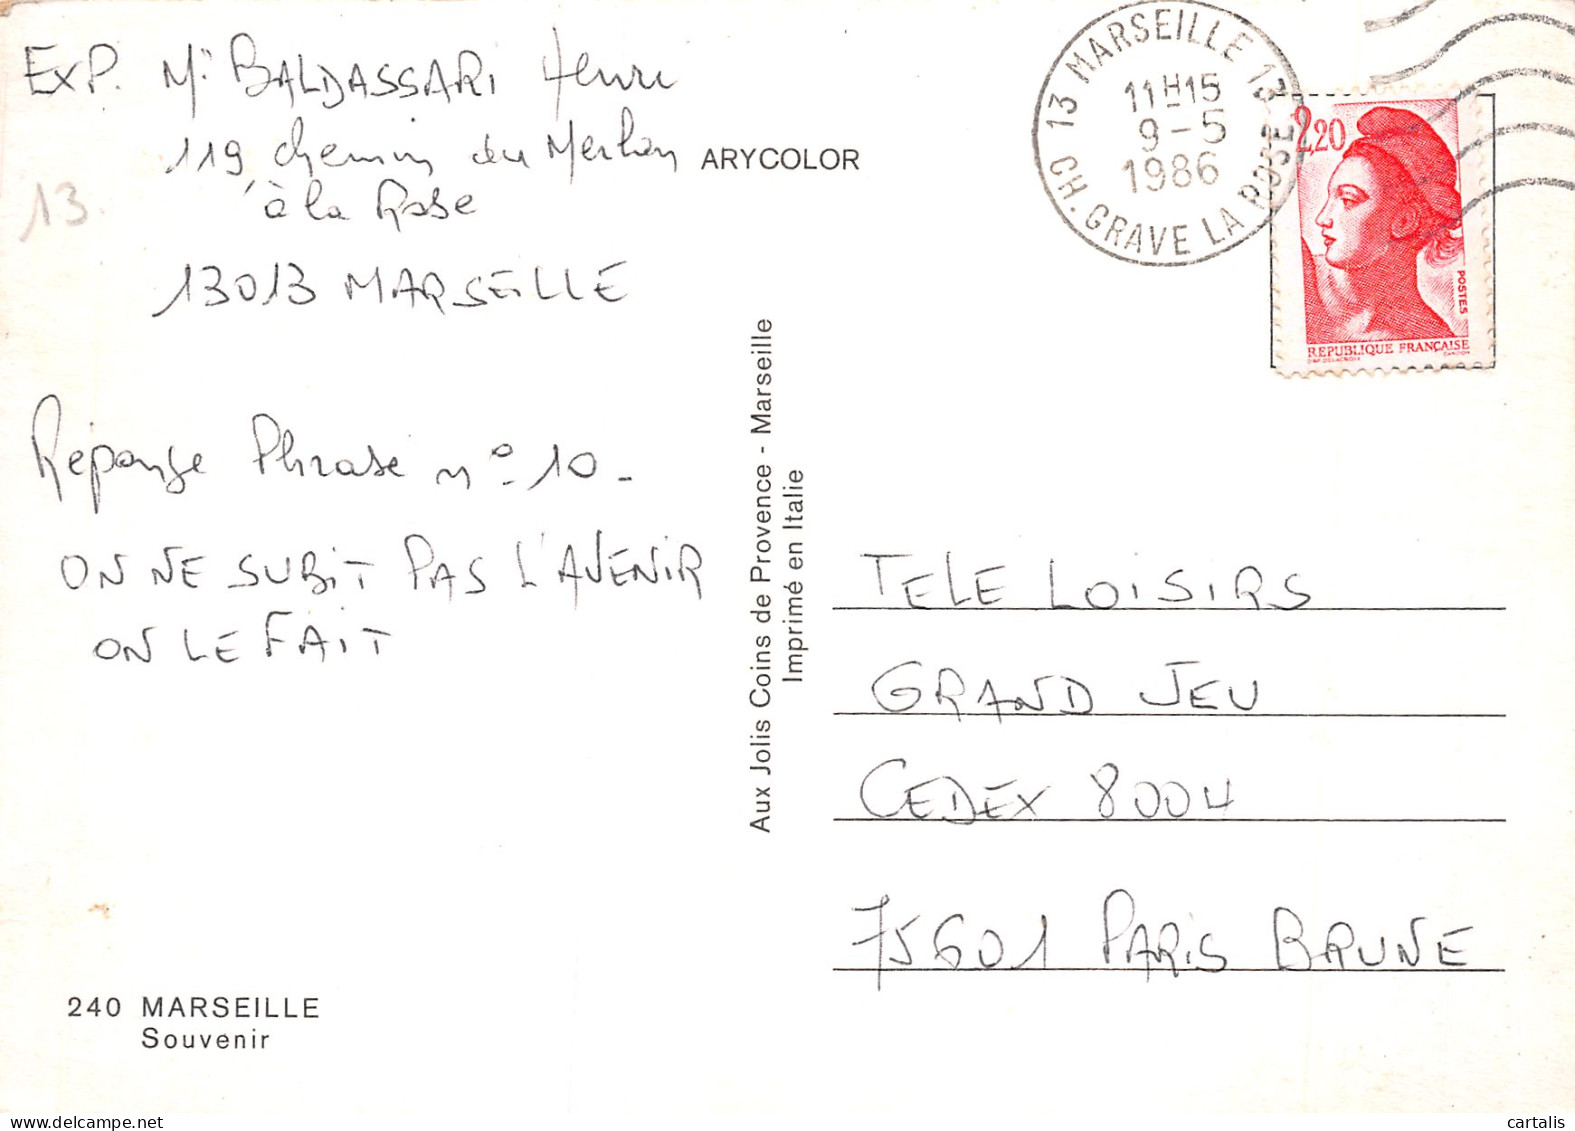 EXP. Mr BALDASSARI Henri
119 chemin du Merlan
à la Rose
13013 MARSEILLE
13.
ARYCOLOR
13 MARSEILLE 13
11H15
9-5
1986
CH. GRAVE LA ROSE
2,20
POSTES
REPUBLIQUE FRANÇAISE
Reponse Phrase n° 10 -
ON NE SUBIT PAS L'AVENIR
ON LE FAIT
Aux Jolis Coins de Provence - Marseille
Imprimé en Italie
TELE LOISIRS
GRAND JEU
CEDEX 8004
75601 PARIS BRUNE
240 MARSEILLE
Souvenir
delcampe.net
cartalis